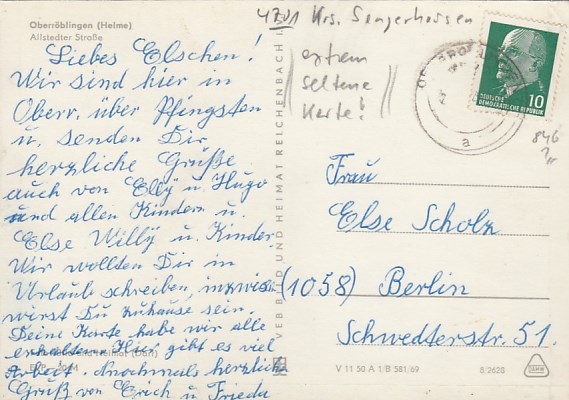 Oberröblingen (Helme)
Allstedter Straße
Liebes Elschen!
Wir sind hier in
Oberr. über Pfingsten
u. senden Dir
herzliche Grüße
auch von Elly u. Hugo
und allen Kindern u.
Else Willy u. Kinder
Wir wollten Dir in
Urlaub schreiben, inzwis.
wirst Du zuhause sein.
Deine Karte habe wir alle
erhalten. Hier gibt es viel
Arbeit. Nochmals herzliche
Gruß von Erich u. Frieda
VEB BILD UND HEIMAT REICHENBACH I.
4701 Krs. Sangerhausen
extrem
seltene
Karte!
DEUTSCHE
DEMOKRATISCHE REPUBLIK
10
a
846
Frau
Else Scholz
(1058) Berlin
Schwedterstr. 51.
V 11 50 A 1/B 581/69
8/2628